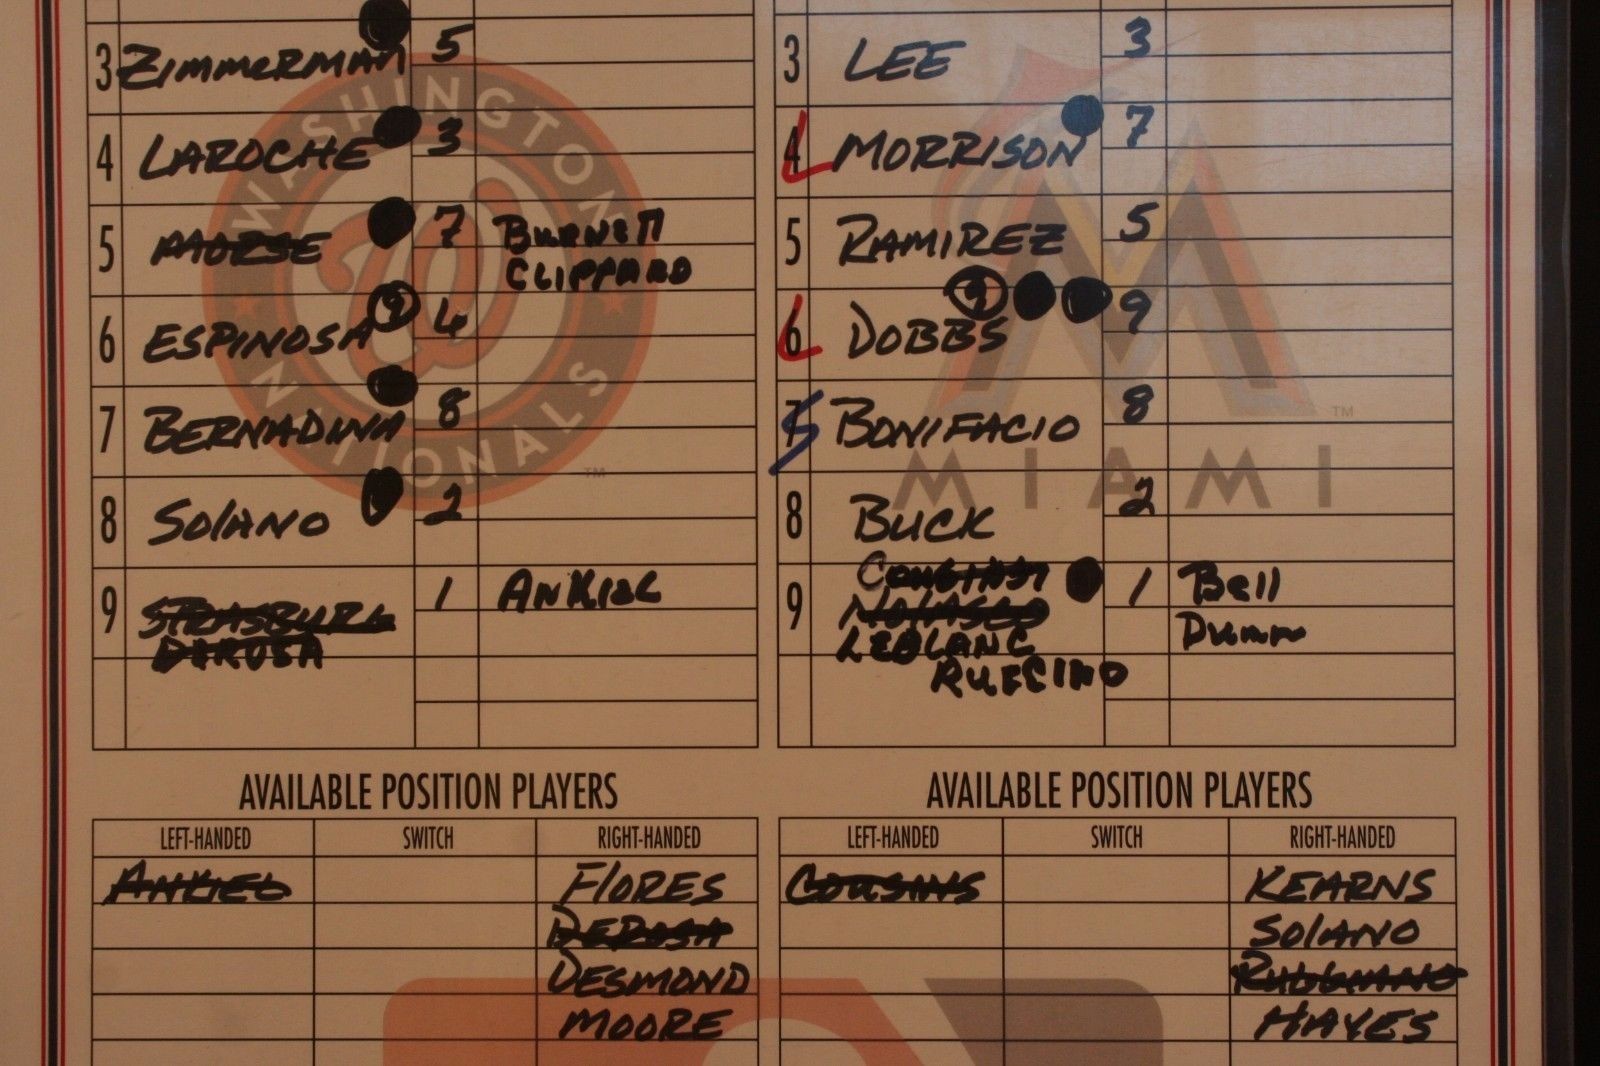 3 ZimmeRMAN 5
4 LAROCHE 3
5 MORSE 7 BURNETT
CLIPPARD
6 ESPINOSA 9 4
7 BERNADINA 8
8 SOlANO 2
9 STRASBURG 1 ANKIEL
DEROSA
WASHINGTON
W
NATIONALS
TM
3 LEE 3
L 4 MORRISON 7
5 RAMIREZ 5
L 6 DOBBS 9 9
S 7 BONIFACIO 8
TM
MIAMI
8 BUCK 2
9 COUSINS 1 Bell
NOlASCO Dunn
LEBLANC
AVAILABLE POSITION PLAYERS
LEFT-HANDED SWITCH RIGHT-HANDED
ANKIEL FlORES
DEROSA
DESMOND
MOORE
AVAILABLE POSITION PLAYERS
LEFT-HANDED SWITCH RIGHT-HANDED
COUSINS KEARNS
SOlANO
HAYES